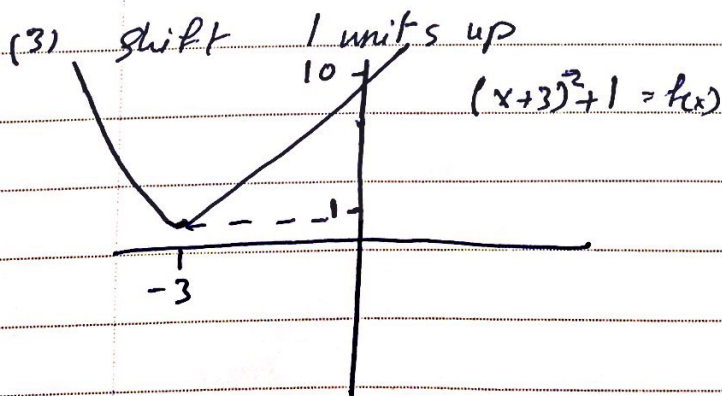 (3) shift 1 units up
10
(x+3)²+1 = f(x)
1
-3